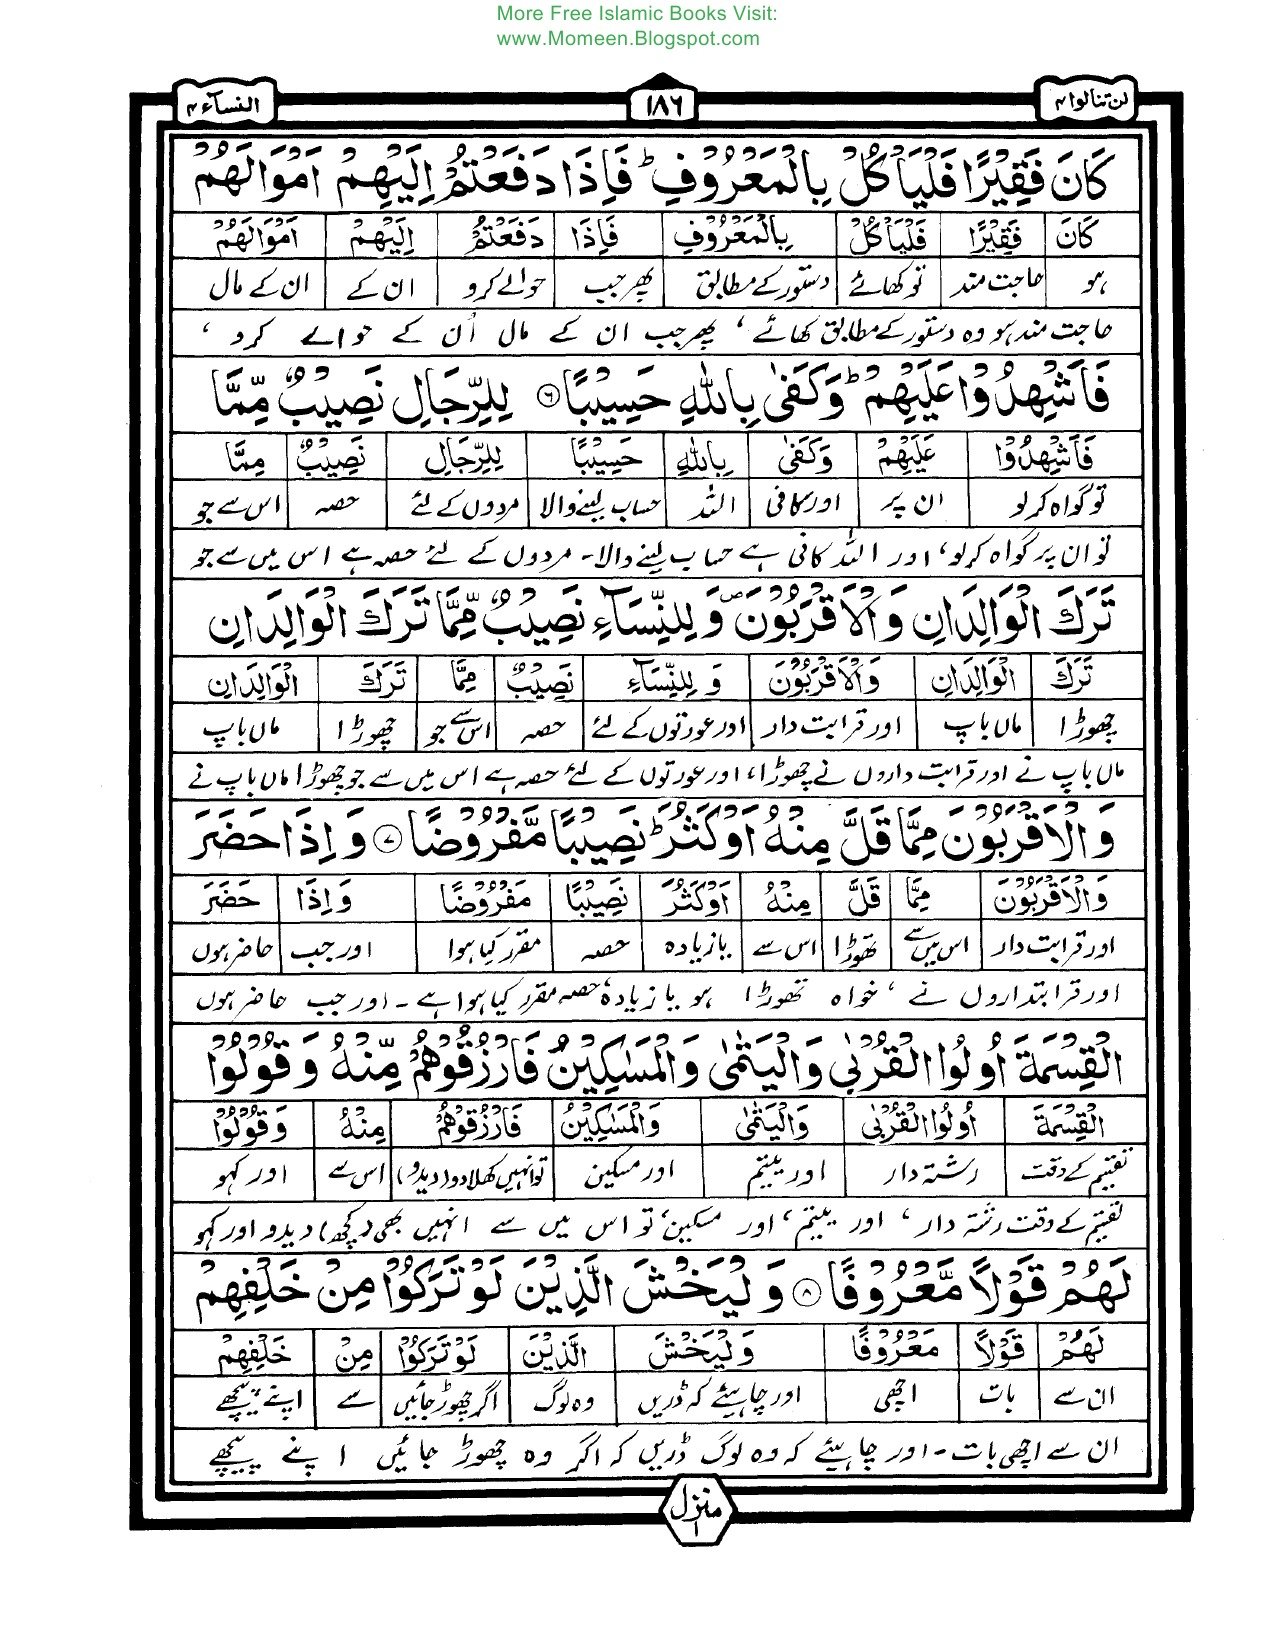 More Free Islamic Books Visit:
www.Momeen.Blogspot.com
لن تنالوا ۴ ۱۸۶ النسآء ۴
كَانَ فَقِيْرًا فَلْيَاْكُلْ بِالْمَعْرُوْفِ ؕ فَاِذَا دَفَعْتُمْ اِلَيْهِمْ اَمْوَالَهُمْ
كَانَ فَقِيْرًا فَلْيَاْكُلْ بِالْمَعْرُوْفِ فَاِذَا دَفَعْتُمْ اِلَيْهِمْ اَمْوَالَهُمْ
ہو حاجت مند تو کھائے دستور کے مطابق پھر جب حوالے کرو ان کے ان کے مال
حاجت مند ہو وہ دستور کے مطابق کھائے ، پھر جب ان کے مال اُن کے حوالے کرو ،
فَاَشْهِدُوْا عَلَيْهِمْ ؕ وَكَفٰى بِاللّٰهِ حَسِيْبًا ۶ لِلرِّجَالِ نَصِيْبٌ مِّمَّا
فَاَشْهِدُوْا عَلَيْهِمْ وَكَفٰى بِاللّٰهِ حَسِيْبًا لِلرِّجَالِ نَصِيْبٌ مِمَّا
تو گواہ کرلو ان پر اور کافی اللہ حساب لینے والا مردوں کے لئے حصہ اس سے جو
تو ان پر گواہ کرلو، اور اللہ کافی ہے حساب لینے والا۔ مردوں کے لئے حصہ ہے اس میں سے جو
تَرَكَ الْوَالِدَانِ وَالْاَقْرَبُوْنَ ۪ وَلِلنِّسَآءِ نَصِيْبٌ مِّمَّا تَرَكَ الْوَالِدَانِ
تَرَكَ الْوَالِدَانِ وَالْاَقْرَبُوْنَ وَلِلنِّسَآءِ نَصِيْبٌ مِمَّا تَرَكَ الْوَالِدَانِ
چھوڑا ماں باپ اور قرابت دار اور عورتوں کے لئے حصہ اس سے جو چھوڑا ماں باپ
ماں باپ نے اور قرابت داروں نے چھوڑا، اور عورتوں کے لئے حصہ ہے اس میں سے جو چھوڑا ماں باپ نے
وَالْاَقْرَبُوْنَ مِمَّا قَلَّ مِنْهُ اَوْ كَثُرَ ؕ نَصِيْبًا مَّفْرُوْضًا ۷ وَاِذَا حَضَرَ
وَالْاَقْرَبُوْنَ مِمَّا قَلَّ مِنْهُ اَوْ كَثُرَ نَصِيْبًا مَفْرُوْضًا وَاِذَا حَضَرَ
اور قرابت دار اس میں سے تھوڑا اس سے یا زیادہ حصہ مقرر کیا ہوا اور جب حاضر ہوں
اور قرابتداروں نے ، خواہ تھوڑا ہو یا زیادہ، حصہ مقرر کیا ہوا ہے ۔ اور جب حاضر ہوں
الْقِسْمَةَ اُولُوا الْقُرْبٰى وَالْيَتٰمٰى وَالْمَسٰكِيْنُ فَارْزُقُوْهُمْ مِّنْهُ وَقُوْلُوْا
الْقِسْمَةَ اُولُوا الْقُرْبٰى وَالْيَتٰمٰى وَالْمَسٰكِيْنُ فَارْزُقُوْهُمْ مِنْهُ وَقُوْلُوْا
تقسیم کے وقت رشتہ دار اور یتیم اور مسکین تو انہیں کھلادو (دیدو) اس سے اور کہو
تقسیم کے وقت رشتہ دار ، اور یتیم ، اور مسکین، تو اس میں سے انہیں بھی (کچھ) دیدو اور کہو
لَهُمْ قَوْلًا مَّعْرُوْفًا ۸ وَلْيَخْشَ الَّذِيْنَ لَوْ تَرَكُوْا مِنْ خَلْفِهِمْ
لَهُمْ قَوْلًا مَعْرُوْفًا وَلْيَخْشَ الَّذِيْنَ لَوْ تَرَكُوْا مِنْ خَلْفِهِمْ
ان سے بات اچھی اور چاہیئے کہ ڈریں وہ لوگ اگر چھوڑ جائیں سے اپنے پیچھے
ان سے اچھی بات ۔ اور چاہیئے کہ وہ لوگ ڈریں کہ اگر وہ چھوڑ جائیں اپنے پیچھے
منزل ۱